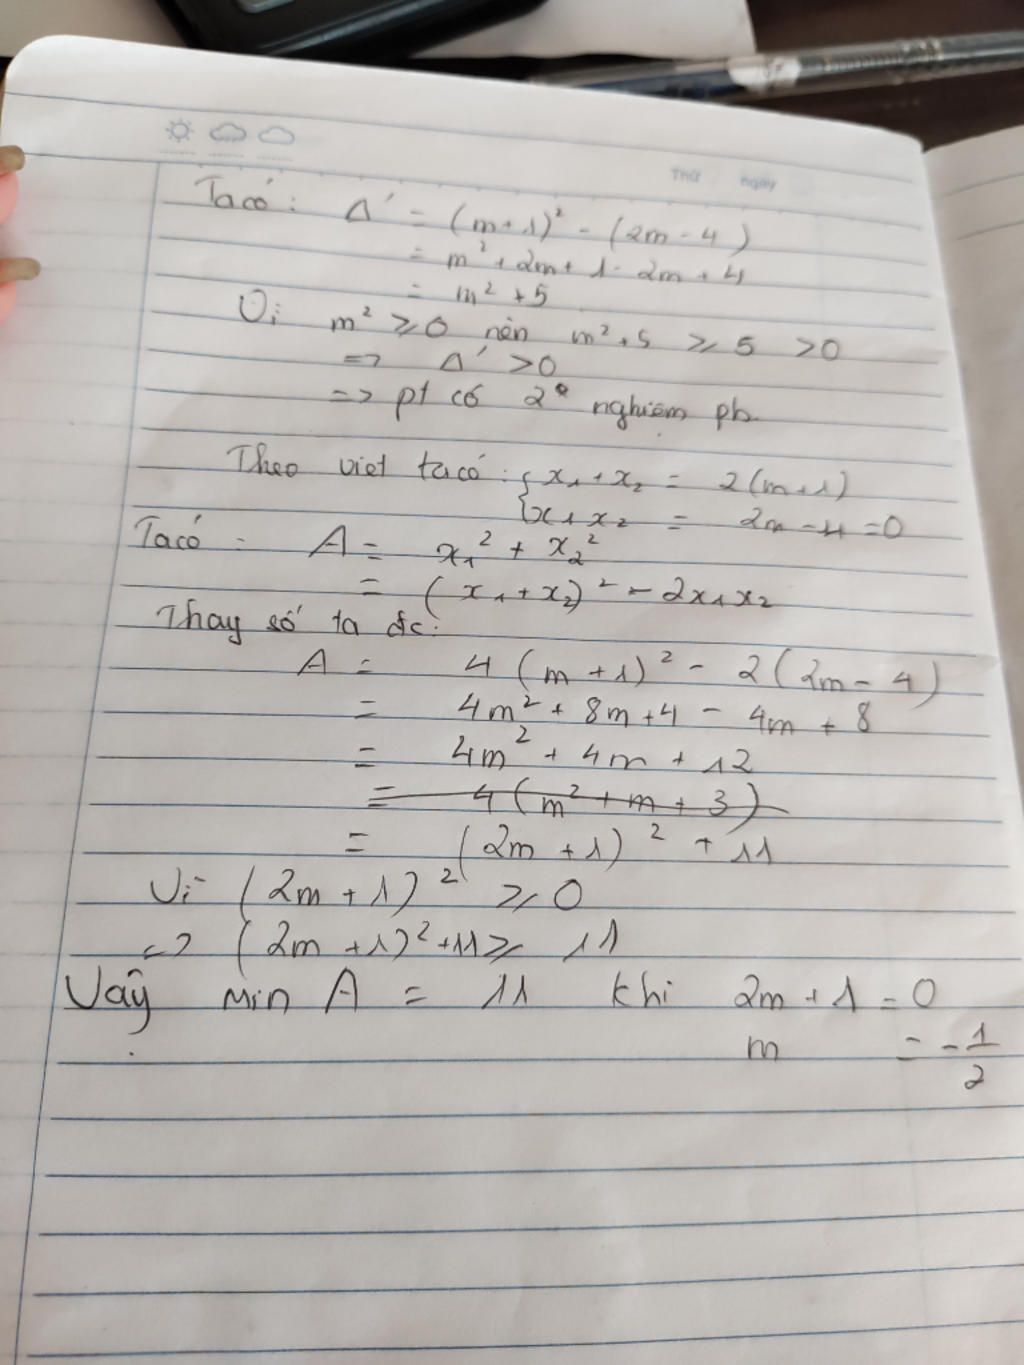 Thứ ngày
Ta có : Δ' = (m+1)² - (2m - 4)
= m² + 2m + 1 - 2m + 4
= m² + 5
Vì m² ≥ 0 nên m² + 5 ≥ 5 > 0
=> Δ' > 0
=> pt có 2 nghiệm pb
Theo viet ta có : { x₁ + x₂ = 2(m+1)
x₁x₂ = 2m - 4 = 0
Ta có : A = x₁² + x₂²
= (x₁ + x₂)² - 2x₁x₂
Thay số ta đc:
A = 4(m+1)² - 2(2m - 4)
= 4m² + 8m + 4 - 4m + 8
= 4m² + 4m + 12
= 4(m² + m + 3)
= (2m + 1)² + 11
Vì (2m + 1)² ≥ 0
<=> (2m + 1)² + 11 ≥ 11
Vậy Min A = 11 khi 2m + 1 = 0
m = -1/2